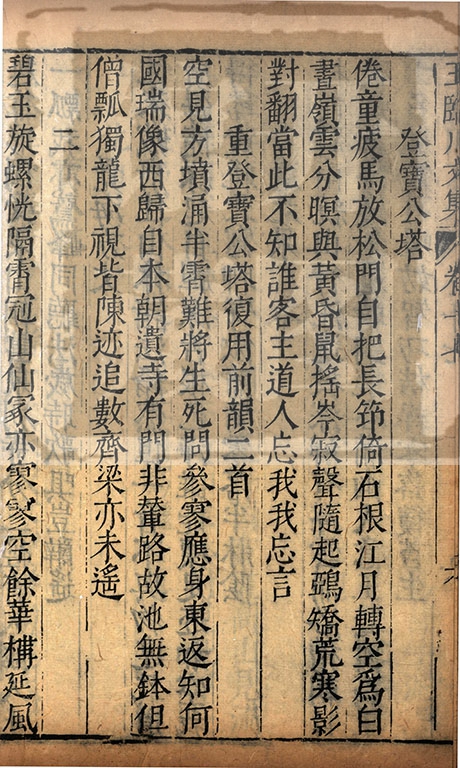 王臨川文集 卷十七
登寶公塔
倦童疲馬放松門自把長筇倚石根江月轉空爲白
晝嶺雲分暝與黃昏鼠搖岑寂聲隨起鵶矯荒寒影
對翻當此不知誰客主道人忘我我忘言
重登寶公塔復用前韻二首
空見方墳涌半霄難將生死問參寥應身東返知何
國瑞像西歸自本朝遺寺有門非輦路故池無鉢但
僧瓢獨龍下視皆陳迹追數齊梁亦未遙
二
碧玉旋螺恍隔霄冠山仙冢亦寥寥空餘華構延風